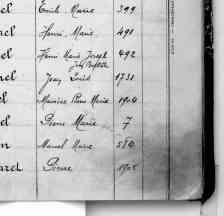 el Emile Marie 399
el Henri Marie 491
el Henri Marie Joseph 492
rel Jean Louis 1731
el Maurice Pierre Marie 1904
el Pierre Marie 7
n Marcel Marie 584
arel Pierre